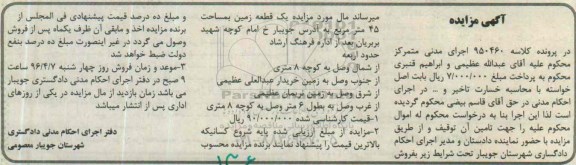 آگهی مزایده
در پرونده کلاسه ۹۵۰۴۶۰ اجرای مدنی متمرکز
محکوم علیه آقای عبدالله عظیمی و ابراهیم قنبری
محکوم به پرداخت مبلغ ۷/۰۰۰/۰۰۰ ریال بابت اصل
خواسته با محاسبه خسارت تاخیر و ... در اجرای
احکام مدنی در حق آقای قاسم بیضی محکوم گردیده
است لذا این اجرا بنا به درخواست محکوم له اموال
محکوم علیه را جهت تامین آن توقیف و از طریق
مزایده با حضور نماینده دادستان و مدیر اجرای احکام
دادگستری شهرستان جویبار تحت شرایط زیر بفروش
میرساند مال مورد مزایده یک قطعه زمین بمساحت
۴۵ متر مربع به آدرس جویبار خ امام کوچه شهید
بربریان بعد از اداره فرهنگ ارشاد
حدود اربعه
از شمال وصل به کوچه ۸ متری
از جنوب وصل به زمین خریدار عبدالعلی عظیمی
از شرق وصل به زمین نریمان عظیمی
از غرب وصل به بطول ۶ متر وصل به کوچه ۸ متری
۱-قیمت کارشناسی شده ۹۰/۰۰۰/۰۰۰ ریال
۲-مزایده از مبلغ ارزیابی شده پایه شروع کسانیکه
بالاترین قیمت را پیشنهاد نمایند برنده مزایده محسوب
و مبلغ ده درصد قیمت پیشنهادی فی المجلس از
برنده مزایده اخذ و مابقی آن ظرف یکماه پس از فروش
وصول می گردد در غیر اینصورت مبلغ ده درصد بنفع
دولت ضبط خواهد شد
۳-موعد و زمان فروش روز چهار شنبه ۹۶/۴/۷ ساعت
۹ صبح در دفتر اجرای احکام مدنی دادگستری جویبار
می باشد زمان بازدید از مال مزایده در یکی از روزهای
اداری پس از انتشار میباشد
دفتر اجرای احکام مدنی دادگستری
شهرستان جویبار معصومی